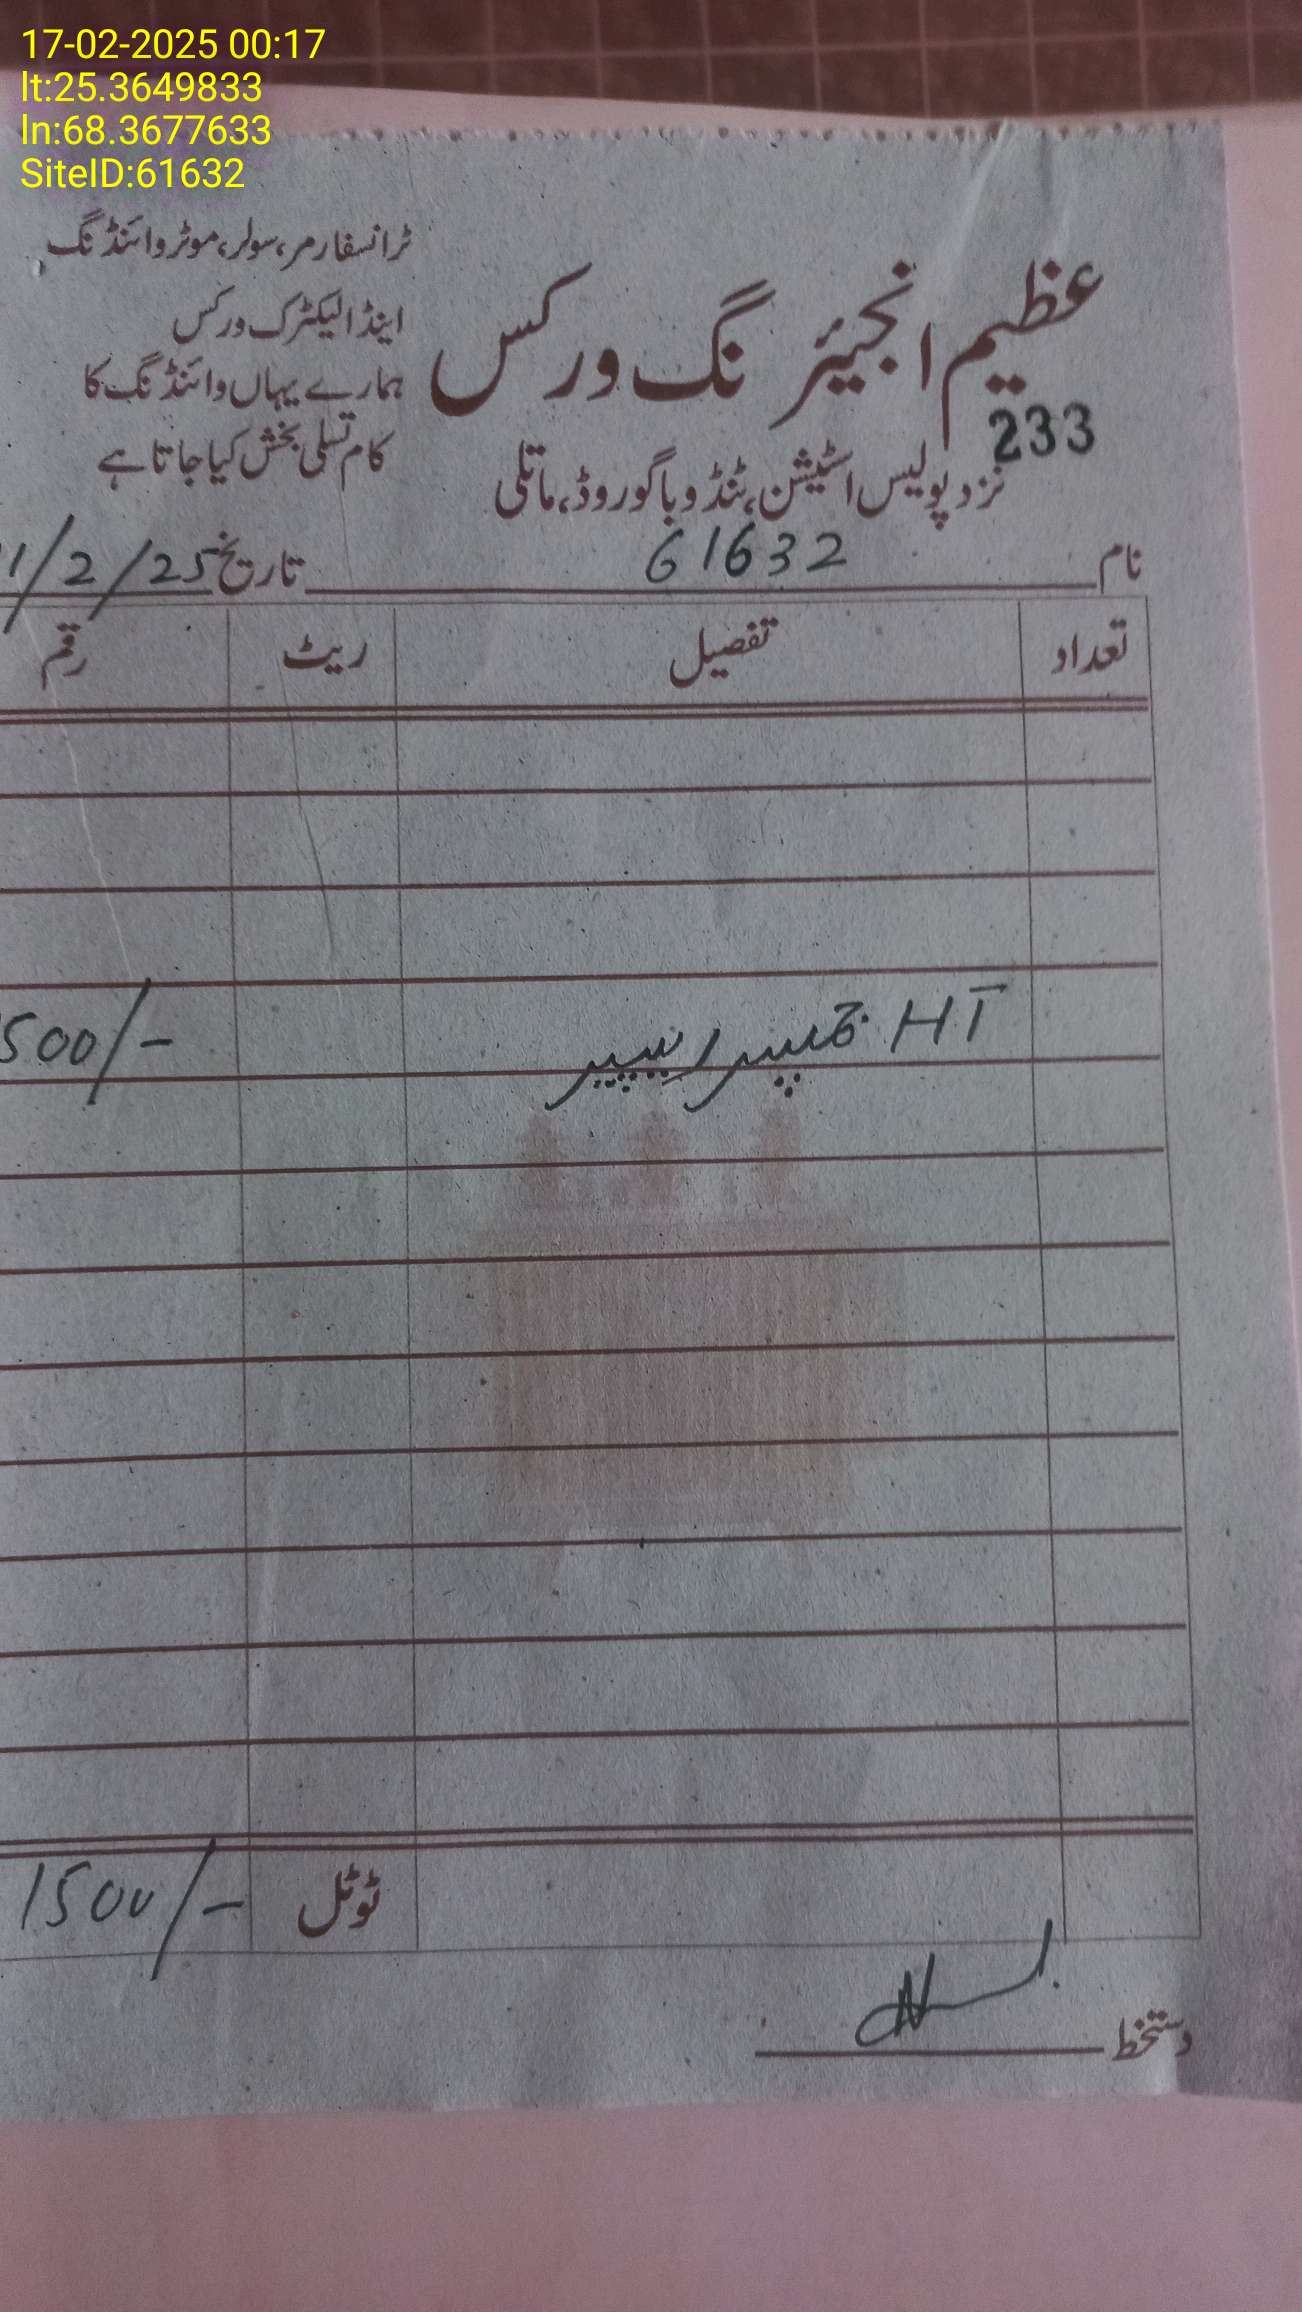 17-02-2025 00:17
lt:25.3649833
ln:68.3677633
SiteID:61632
عظیم انجیئر نگ ورکس
ٹرانسفارمر، سولر، موٹر وائنڈنگ
اینڈ الیکٹرک ورکس
ہمارے یہاں وائنڈنگ کا
کام تسلی بخش کیا جاتا ہے
233
نزد پولیس اسٹیشن، ٹنڈو باگو روڈ، ماتلی
نام 61632 تاریخ 1/2/25
تعداد تفصیل ریٹ رقم
HT جمپر ریپیر 500/-
ٹوٹل 1500/-
دستخط